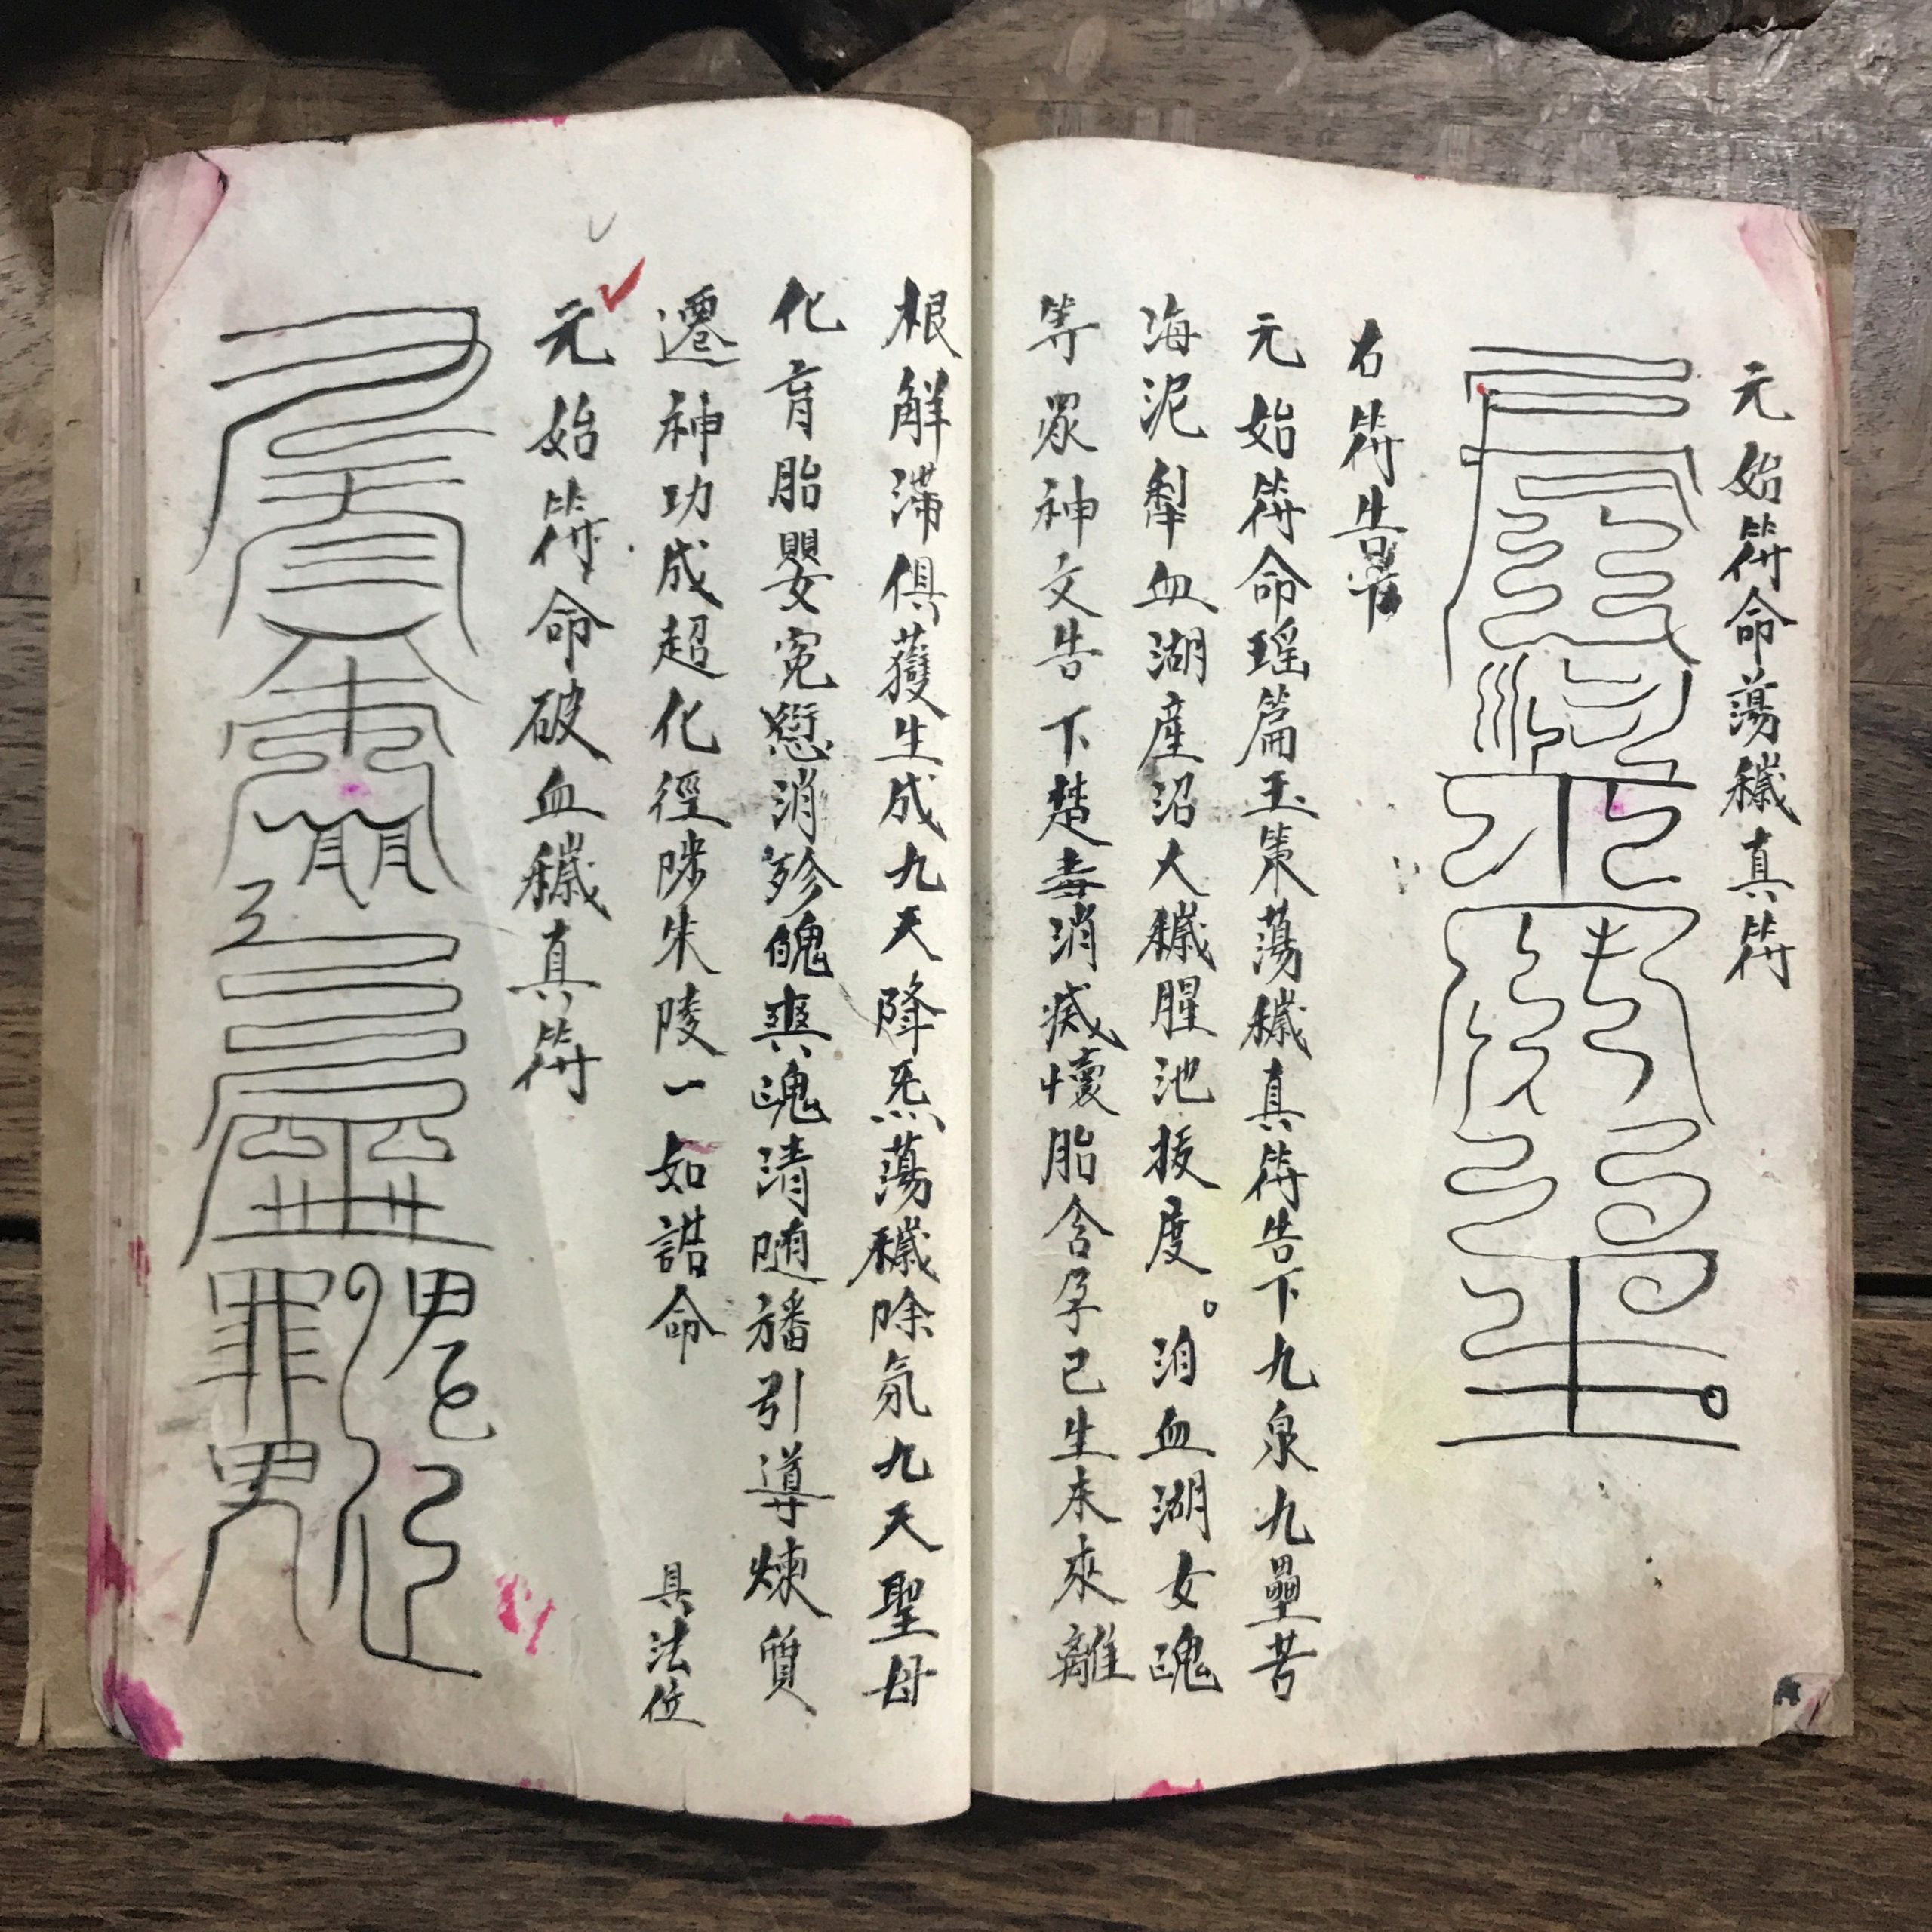 元始符命蕩穢真符
右符告
元始符命瑶篇玉策蕩穢真符告下九泉九壘苦
海泥犁血湖産沼大穢腥池拔度。洎血湖女魂
等眾神文告下楚毒消滅懷胎含孕已生未來離
根解滯俱獲生成九天降炁蕩穢除氛九天聖母
化育胎嬰寃愆消殄魄爽魂清随旛引導煉質
遷神功成超化徑陟朱陵一如誥命 具法位
元始符命破血穢真符